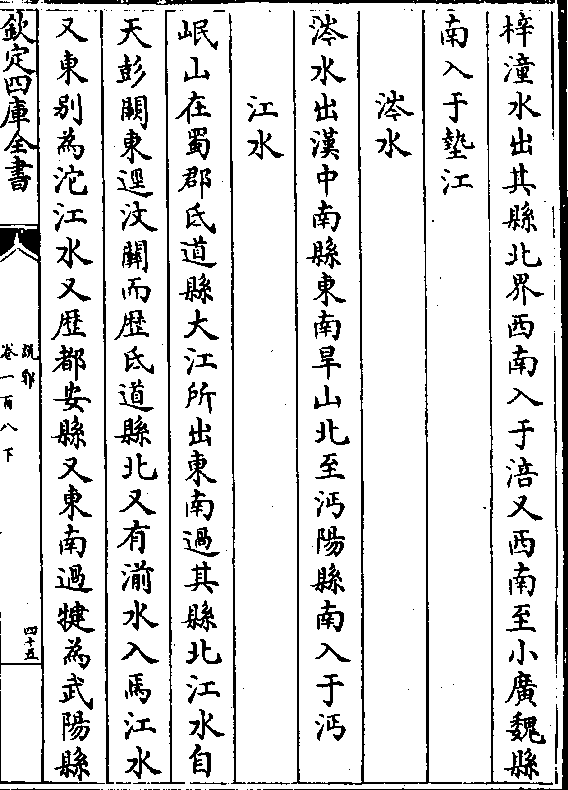 梓潼水出其縣北界西南入于涪又西南至小廣魏縣
南入于墊江
涔水
涔水出漢中南縣東南旱山北至沔陽縣南入于沔
江水
岷山在蜀郡氐道縣大江所出東南過其縣北江水自
天彭闕東逕汶關而歴氐道縣北又有湔水入焉江水
又東别為沱江水又歴都安縣又東南過犍為武陽縣
欽定四庫全書
說郛
卷一百八下
四十五